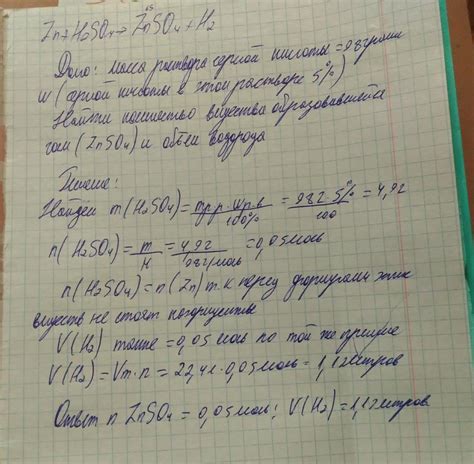 Zn+H2SO4→ZnSO4+H2
Дано: масса раствора серной кислоты = 98 грамм
w (серной кислоты в этом растворе 5%)
Найти количество вещества образовавшейся
соли (ZnSO4) и объём водорода
Решение:
Найдем m(H2SO4)= mр.р · wр.в / 100% = 98г·5% / 100 = 4,9г
n(H2SO4)= m / M = 4,9г / 98г/моль = 0,05моль
n(H2SO4)=n(Zn) т.к перед формулами этих
веществ не стоят коэффициенты
V(H2) тоже =0,05моль по той же причине
V(H2)=Vm·n=22,4л·0,05моль=1,12литров
Ответ n ZnSO4=0,05моль; V(H2)=1,12литров